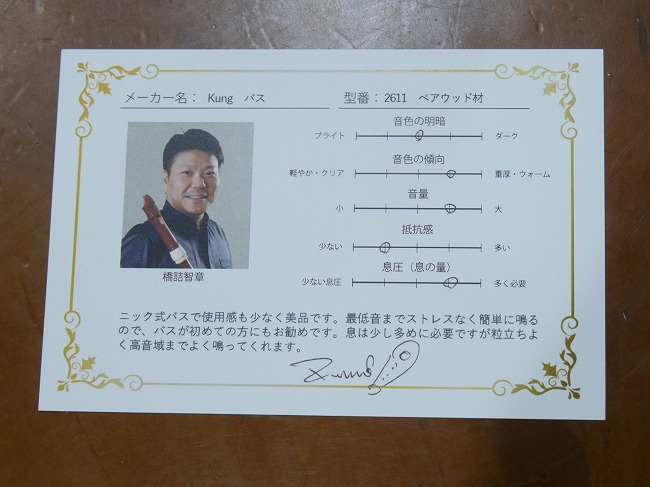 メーカー名： Kung バス
型番：2611 ペアウッド材
音色の明暗
ブライト ダーク
音色の傾向
軽やか・クリア 重厚・ウォーム
音量
小 大
抵抗感
少ない 多い
息圧（息の量）
少ない息圧 多く必要
橋詰智章
ニック式バスで使用感も少なく美品です。最低音までストレスなく簡単に鳴る
ので、バスが初めての方にもお勧めです。息は少し多めに必要ですが粒立ちよ
く高音域までよく鳴ってくれます。